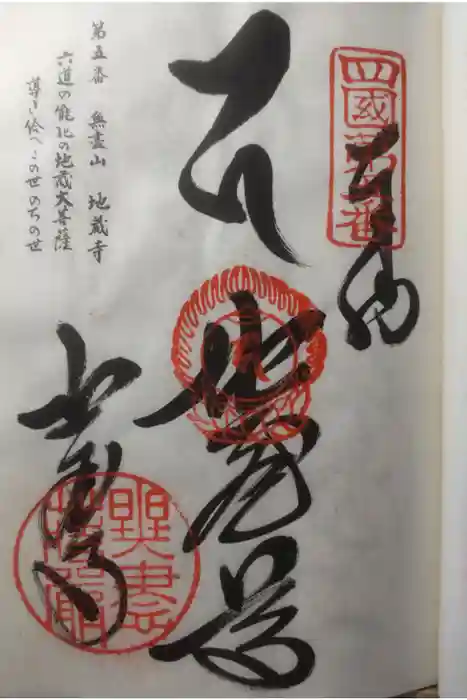 四國第五番
奉納
地蔵尊
地蔵寺
第五番 無盡山 地蔵寺
六道の能化の地蔵大菩薩
導き給へこの世のちの世